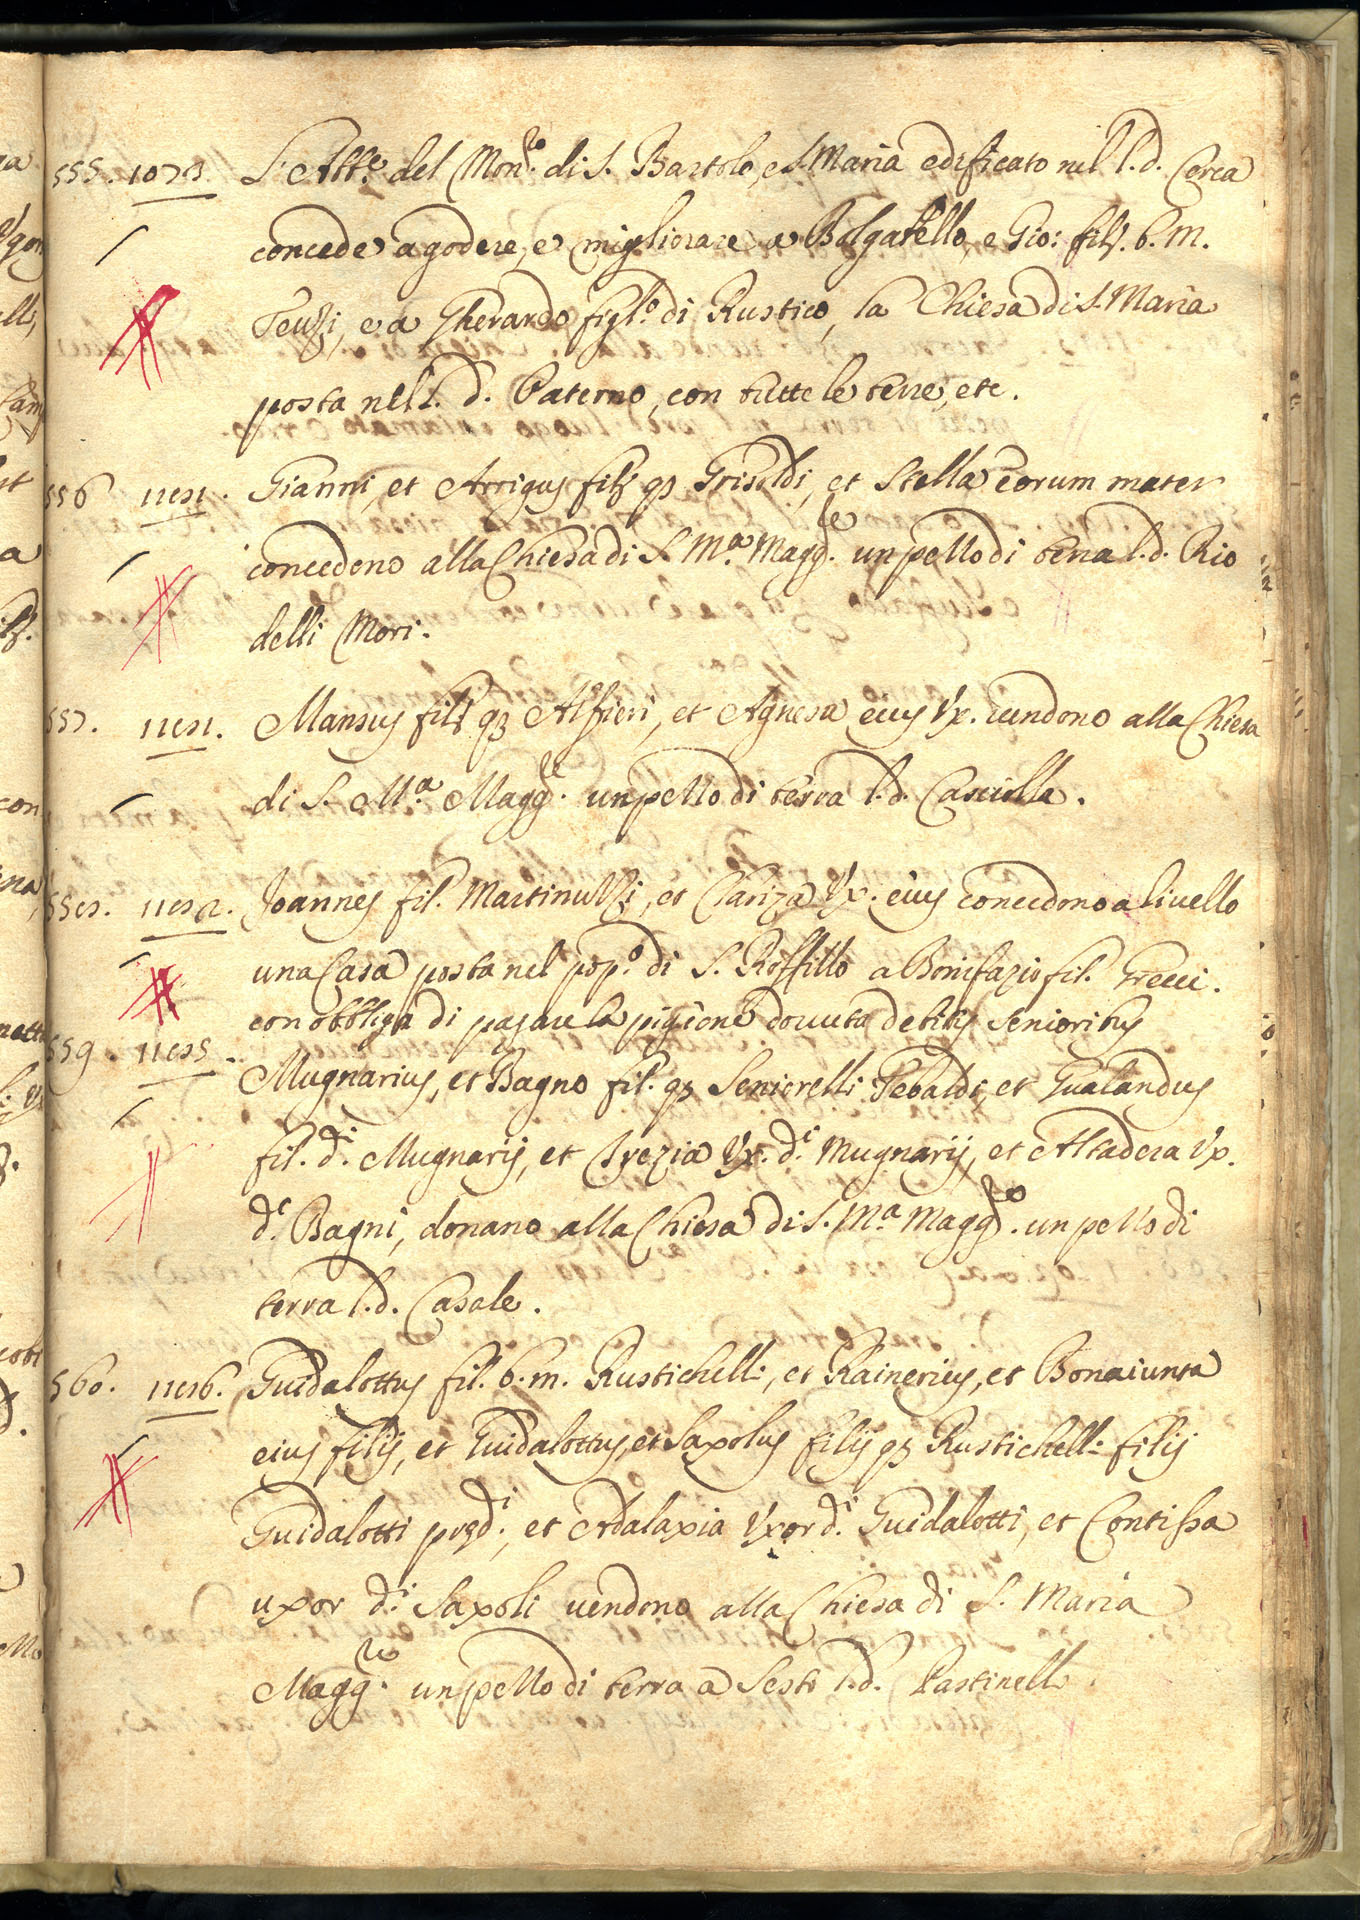 555. 1073 L'Abb.e del Mon.ro di S. Bartolo, e S. Maria edificato nel l.d. Cerca
concede a godere, e migliorare a Bolgarello, e Gio: filj. b. m.
Teuzi, e a Gherardo figl.o di Rustico, la Chiesa di S. Maria
posta nel l. d. Paterno, con tutte le terre, etc.
556 1181. Gianni, et Arrigus filj qz Grisoldi, et Stella eorum mater
concedono alla Chiesa di S. M.a Magg.re un pezzo di terra l.d. Rio
delli Mori.
557. 1181. Mansus filj qz Alfieri, et Agnesa eius Vx. uendono alla Chiesa
di S. M.a Magg.re un pezzo di terra l.d. Casciolla.
558. 1182. Joannes fil. Martinuzzi, et Clariza Vx. eius concedono a liuello
una Casa posta nel pop.o di S. Roffillo a Bonifazio fil. Grecci.
con obbligo di pagare la pigione douuta detitis senioribus
559. 1185. Mugnarius, et Bagno fil. qz Seniorelli Tebaldi, et Gualandus
fil. d.i Mugnarij, et Vx. d.i Mugnarij, et Altadera Vx.
d.i Bagni, donano alla Chiesa di S. M.a Magg.re un pezzo di
terra l.d. Casale.
560. 1186. Guidalottus fil. b. m. Rustichelli, et Rainerius, et Bonaiunta
eius filij, et Guidalottus, et Saxolus filij qz Rustichelli filij
Guidalotti pred.i, et Adalaxia Vxor d.i Guidalotti, et Contissa
uxor d.i Saxoli uendono alla Chiesa di S. Maria
Magg.re un pezzo di terra a Sesto l.d. Pastinello.